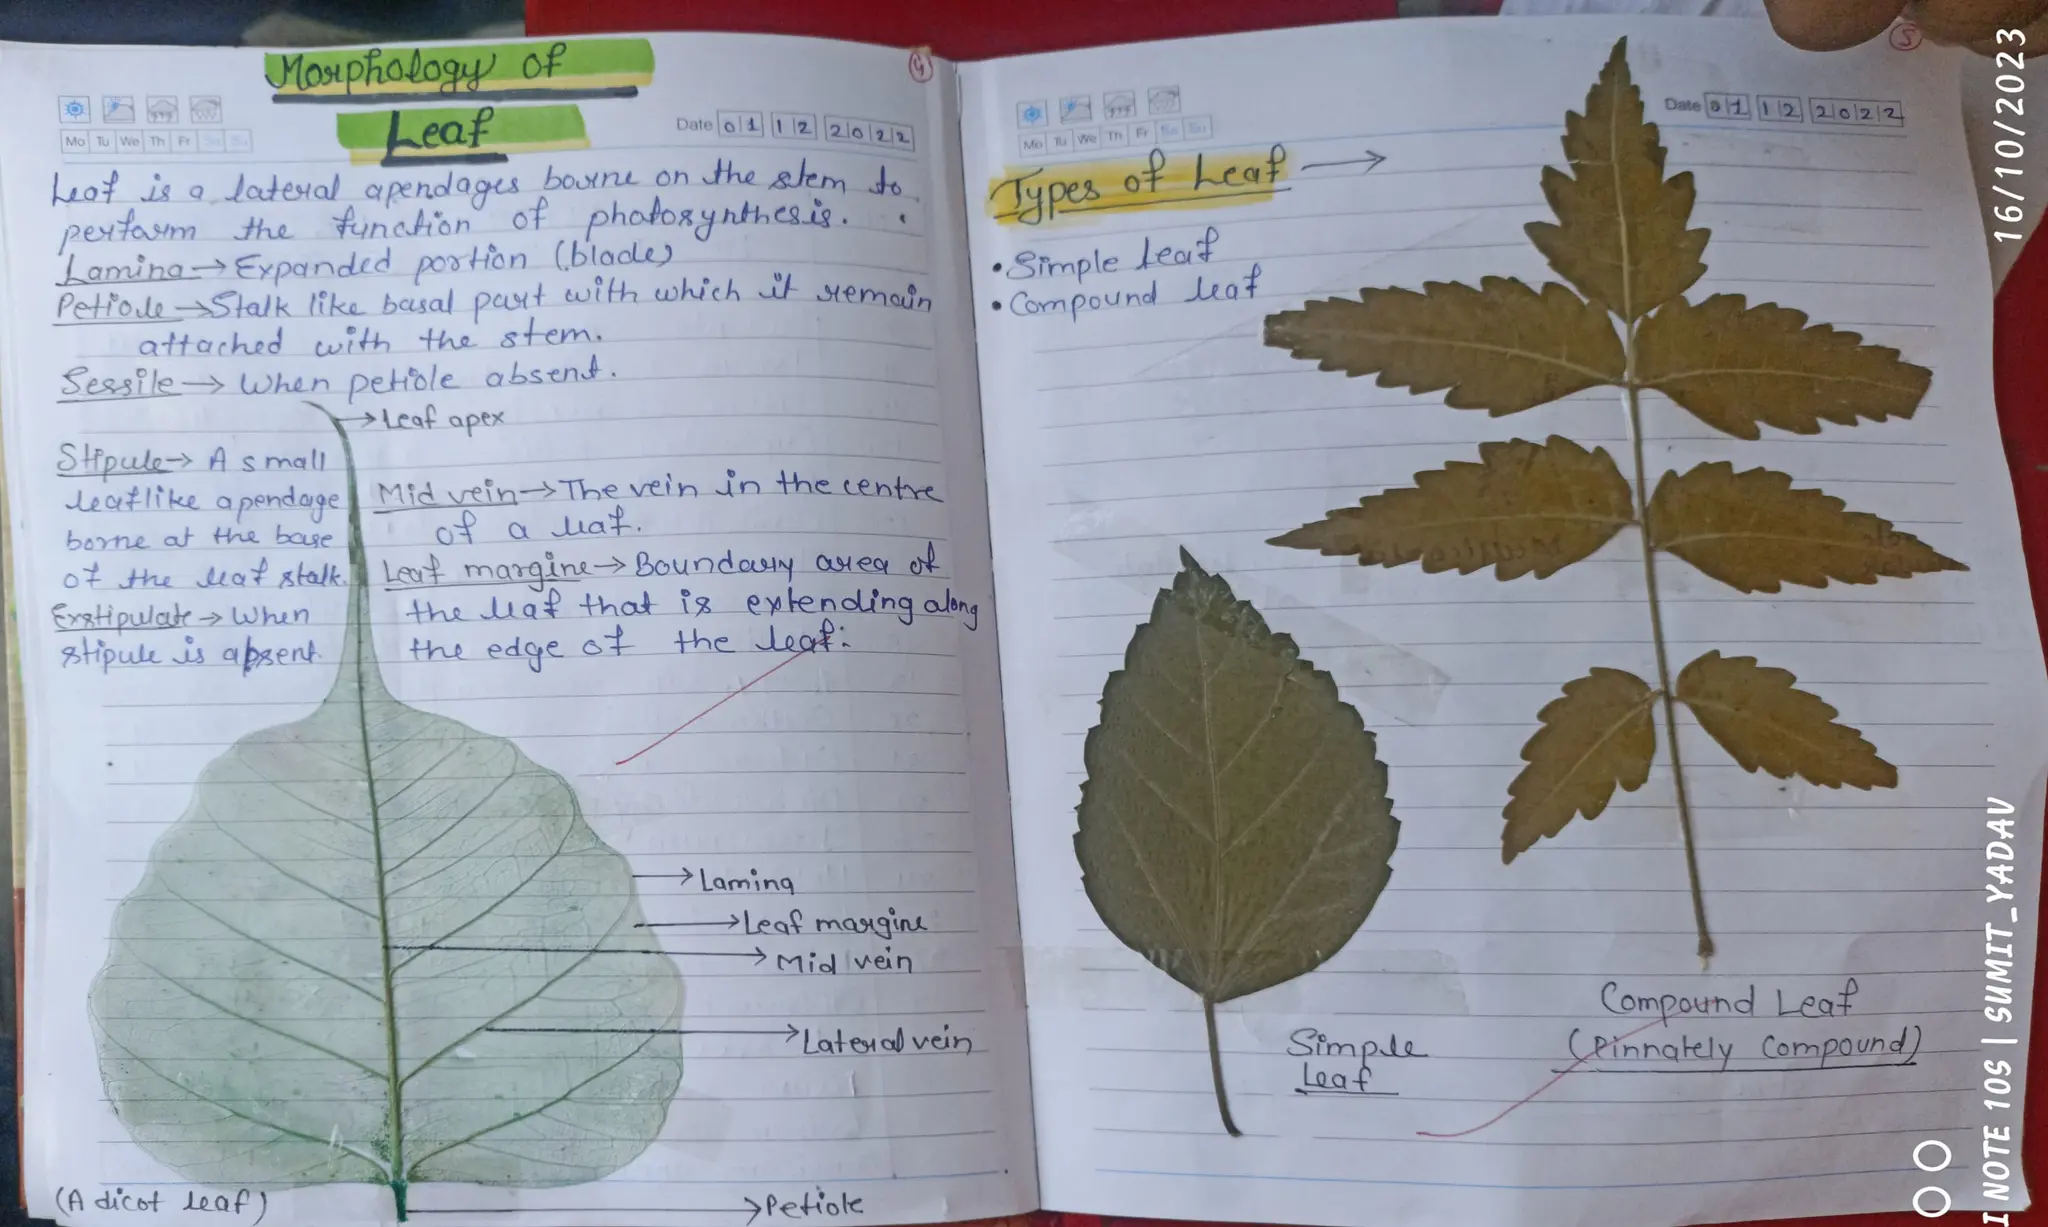 Morphology of
Leaf
4
Mo Tu We Th Fr Sa Su
Date 01 12 2022
Leaf is a lateral apendages bourne on the stem to
perform the function of photosynthesis.
Lamina→Expanded portion (blade)
Petiole→Stalk like basal part with which it remain
attached with the stem.
Sessile→ When petiole absent.
→Leaf apex
Stipule→ A small
leaflike apendage
borne at the base
of the leaf stalk.
Exstipulate→ When
stipule is absent.
Mid vein→The vein in the centre
of a leaf.
Leaf margine→Boundary area of
the leaf that is extending along
the edge of the leaf.
→Lamina
→Leaf margine
→Mid vein
→Lateral vein
(A dicot leaf)
→Petiole
5
Mo Tu We Th Fr Sa Su
Date 01 12 2022
Types of Leaf →
• Simple leaf
• Compound leaf
Simple
Leaf
Compound Leaf
(Pinnately Compound)
16/10/2023
I NOTE 10S | SUMIT_YADAV